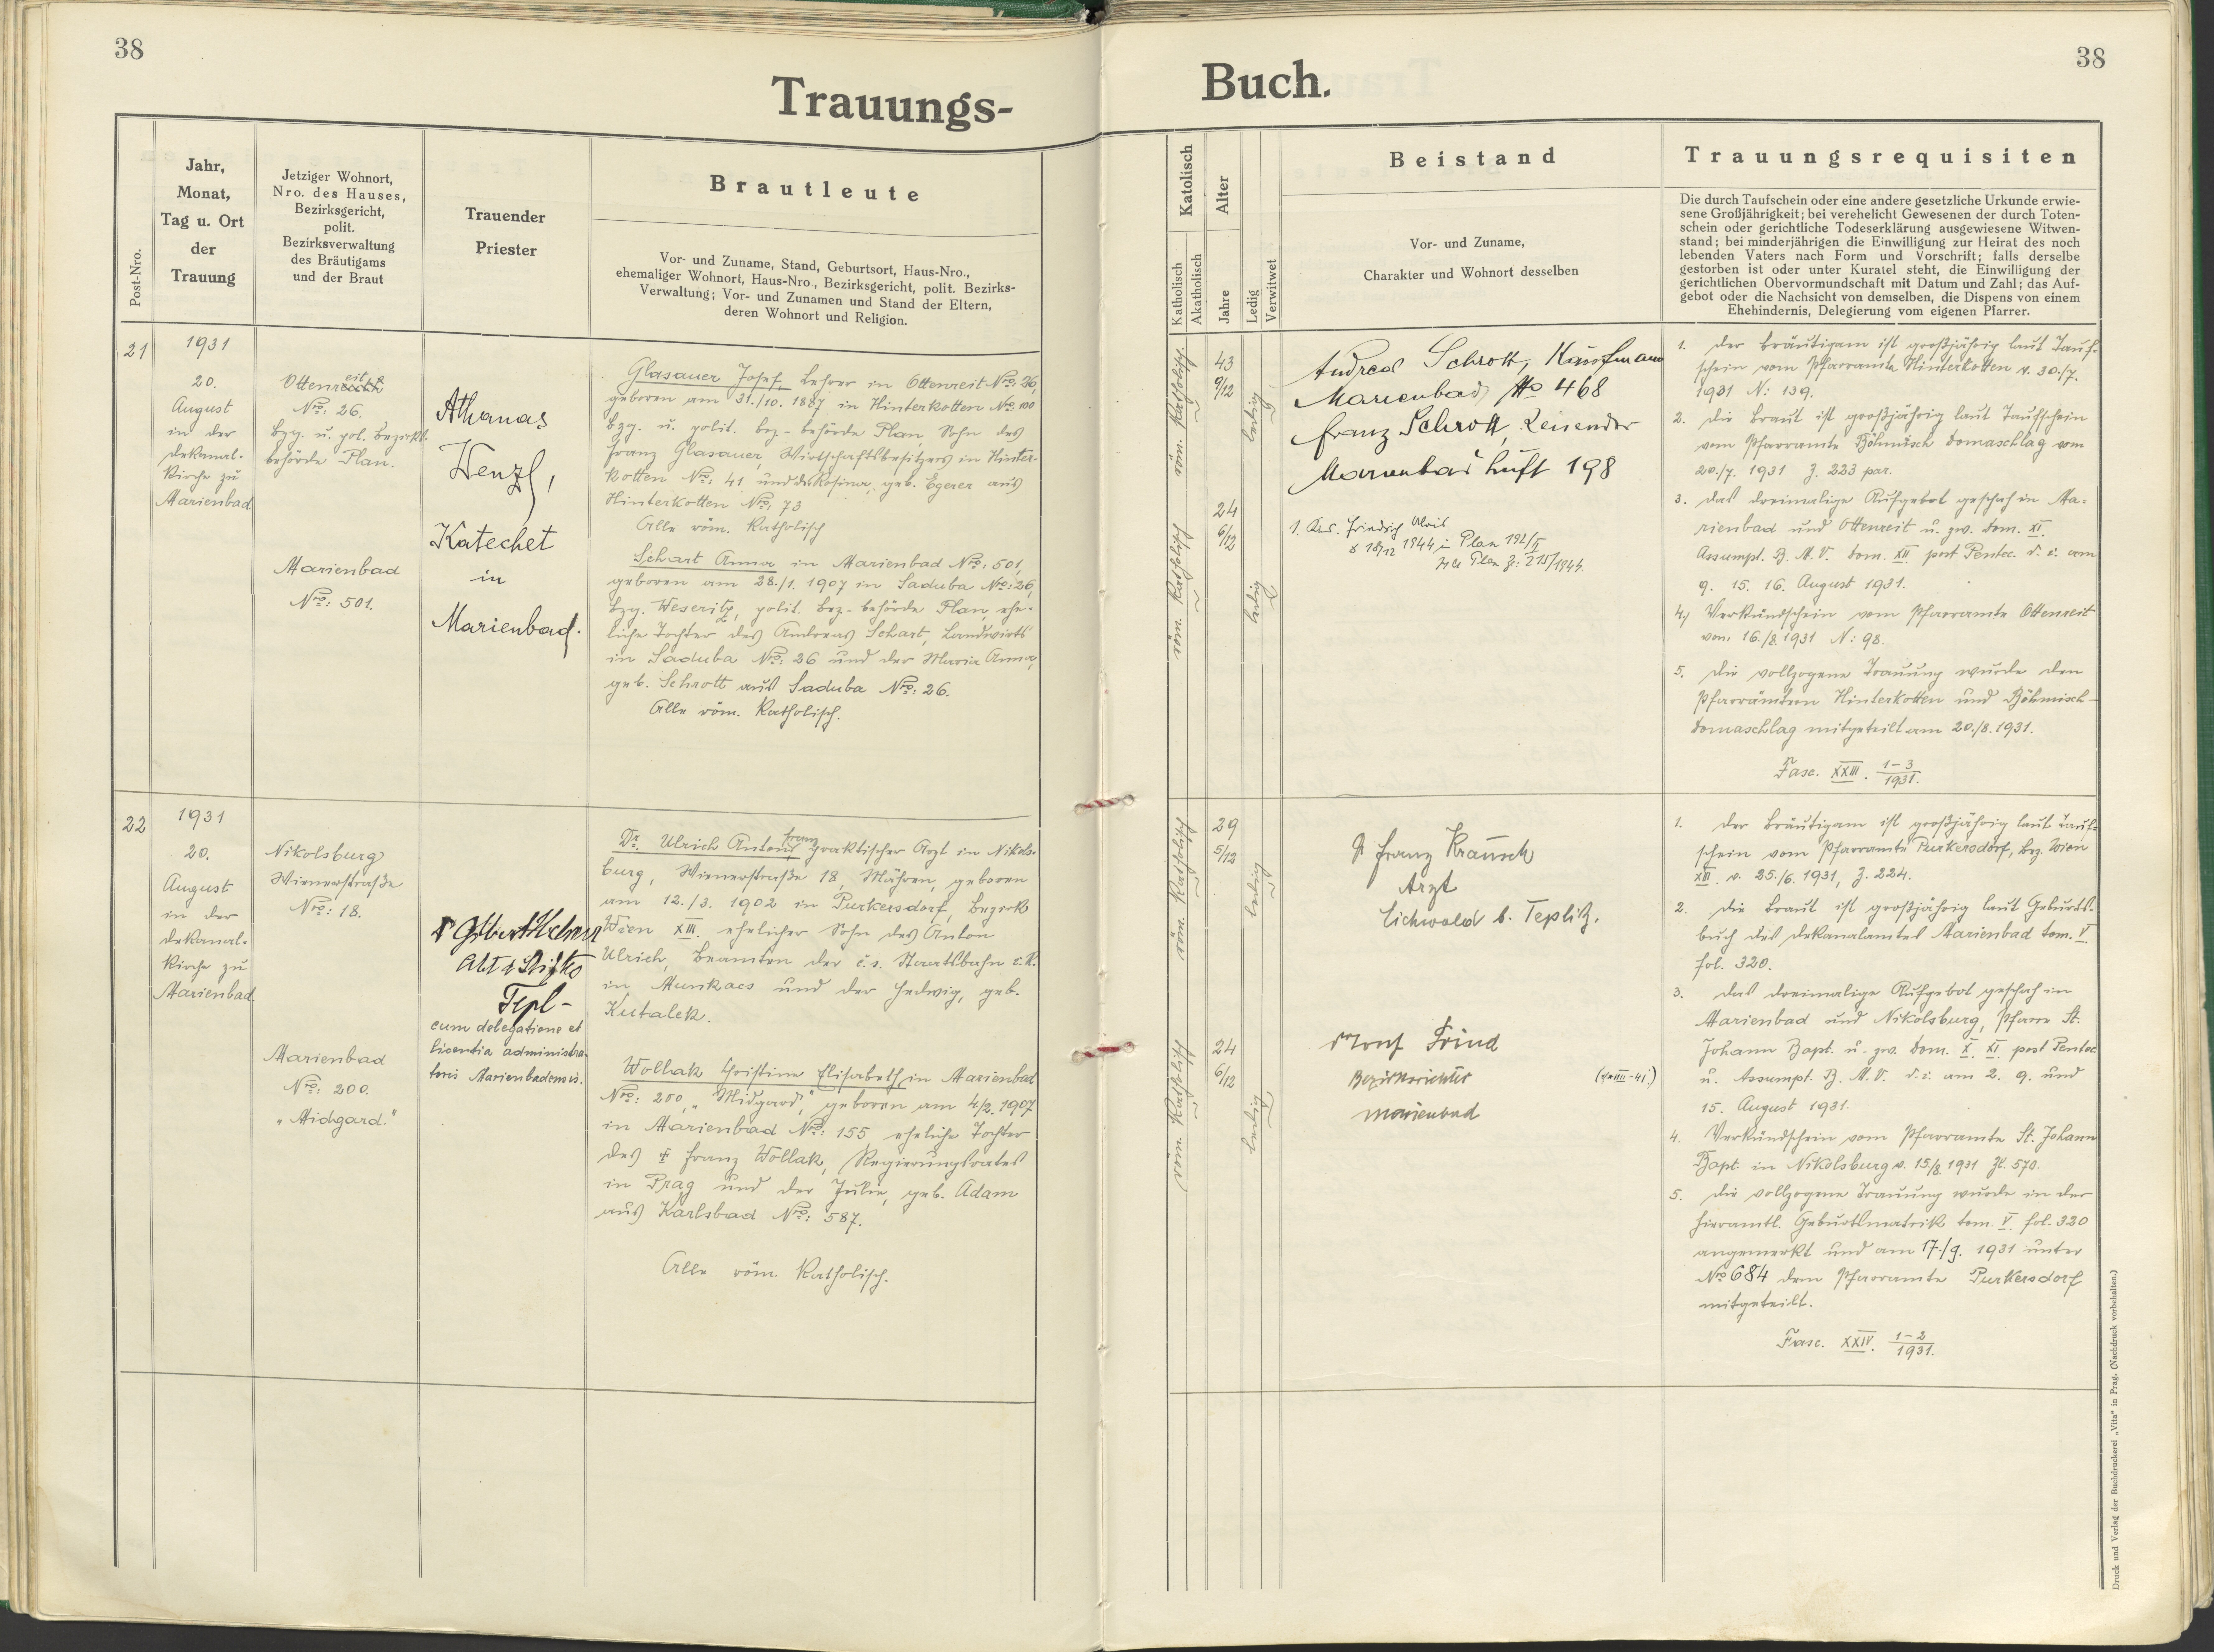 38
38
Trauungs-
Buch.
Post-Nro.
Jahr,
Monat,
Tag u. Ort
der
Trauung
Jetziger Wohnort,
Nro. des Hauses,
Bezirksgericht,
polit.
Bezirksverwaltung
des Bräutigams
und der Braut
Trauender
Priester
Brautleute
Vor- und Zuname, Stand, Geburtsort, Haus-Nro.,
ehemaliger Wohnort, Haus-Nro., Bezirksgericht, polit. Bezirks-
Verwaltung; Vor- und Zunamen und Stand der Eltern,
deren Wohnort und Religion.
Katolisch
Katholisch
Akatholisch
Alter
Jahre
Ledig
Verwitwet
Beistand
Vor- und Zuname,
Charakter und Wohnort desselben
Trauungsrequisiten
Die durch Taufschein oder eine andere gesetzliche Urkunde erwie-
sene Großjährigkeit; bei verehelicht Gewesenen der durch Toten-
schein oder gerichtliche Todeserklärung ausgewiesene Witwen-
stand; bei minderjährigen die Einwilligung zur Heirat des noch
lebenden Vaters nach Form und Vorschrift; falls derselbe
gestorben ist oder unter Kuratel steht, die Einwilligung der
gerichtlichen Obervormundschaft mit Datum und Zahl; das Auf-
gebot oder die Nachsicht von demselben, die Dispens von einem
Ehehindernis, Delegierung vom eigenen Pfarrer.
21
1931
20.
August
in der
Dekanal-
kirche zu
Marienbad
Ottenreit
Nro: 26.
Bzg. u. pol. Bezirks-
behörde Plan.
Marienbad
Nro: 501.
Athanas
Wenzl,
Katechet
in
Marienbad.
Glasauer Josef, Lehrer in Ottenreit Nro: 26,
geboren am 31./10. 1887 in Hinterkotten Nro: 100
Bzg. u. polit. Bez-behörde Plan, Sohn des
Franz Glasauer, Wirtschaftsbesitzers in Hinter-
kotten Nro: 41 und der Rosina, geb. Egerer aus
Hinterkotten Nro: 73
Alle röm. katholisch
Schart Anna in Marienbad Nro: 501,
geboren am 28./1. 1907 in Saduba Nro: 26,
Bzg. Weseritz, polit. Bez-behörde Plan, ehe-
liche Tochter des Andreas Schart, Landwirts
in Saduba Nro: 26 und der Maria Anna,
geb. Schrott aus Saduba Nro: 26.
Alle röm. katholisch.
röm. katholisch.
43
9/12
ledig
röm. katholisch
24
6/12
ledig
Andreas Schrott, Kaufmann
Marienbad No 468
Franz Schrott, Reisender
Marienbad 198
Friedrich Alois
18/12 1944 in Plan 192/II
Plan Z: 215/1944.
1. Der Bräutigam ist großjährig laut Tauf-
schein vom Pfarramte Hinterkotten v. 30./7.
1931 N: 139.
2. Die Braut ist großjährig laut Taufschein
vom Pfarramte Böhmisch Domaschlag vom
20./7. 1931 Z. 223 par.
3. Das dreimalige Aufgebot geschah in Ma-
rienbad und Ottenreit u. zw. Dom. XI.
Assumpt. B. M. V. Dom. XII post Pentec. d. i. am
9. 15. 16. August 1931.
4) Verkündschein vom Pfarramte Ottenreit
vom 16./8. 1931 N: 98.
5. Die vollzogene Trauung wurde den
Pfarrämtern Hinterkotten und Böhmisch-
Domaschlag mitgeteilt am 20./8. 1931.
Fasc. XXIII. 1-3/1931.
22
1931
20.
August
in der
Dekanal-
kirche zu
Marienbad.
Nikolsburg
Wienerstraße
Nro: 18.
Marienbad
Nro: 200.
"Midgard."
Abt d. Stiftes
Tepl-
cum delegatione et
licentia administra-
toris Marienbadensis.
Dr. Ulrich Anton Franz praktischer Arzt in Nikols-
burg, Wienerstraße 18, Mähren, geboren
am 12./3. 1902 in Purkersdorf, Bezirk
Wien XIII. ehelicher Sohn des Anton
Ulrich, Beamten der č.s. Staatsbahn i.R.
in Munkacs und der Hedwig, geb.
Kutalek.
Wollak Christine Elisabeth in Marienbad
Nro: 200, "Midgard", geboren am 4/2. 1907
in Marienbad Nro: 155 eheliche Tochter
des † Franz Wollak, Regierungsrates
in Prag und der Julie, geb. Adam
aus Karlsbad Nro: 587.
Alle röm. katholisch.
röm. katholisch
29
5/12
ledig
röm. katholisch
24
6/12
ledig
Dr Franz Krausch
Arzt
Eichwald b. Teplitz.
Josef Frind
Bezirksrichter
Marienbad
1. Der Bräutigam ist großjährig laut Tauf-
schein vom Pfarramte Purkersdorf, Bez. Wien
XIII. v. 25./6. 1931, Z. 224.
2. Die Braut ist großjährig laut Geburts-
buch des Dekanalamtes Marienbad tom. V.
fol. 320.
3. Das dreimalige Aufgebot geschah in
Marienbad und Nikolsburg, Pfarre St.
Johann Bapt. u. zw. Dom. X. XI. post Pentec
u. Assumpt. B. M. V. d. i. am 2. 9. und
15. August 1931.
4. Verkündschein vom Pfarramte St. Johann
Bapt. in Nikolsburg v. 15/8. 1931 Zl. 570.
5. Die vollzogene Trauung wurde in der
hieramtl. Geburtsmatrik tom. V. fol. 320
angemerkt und am 17./9. 1931 unter
No 684 dem Pfarramte Purkersdorf
mitgeteilt.
Fasc. XXIV. 1-2/1931.
Druck und Verlag der Buchdruckerei „Vita" in Prag. (Nachdruck vorbehalten.)